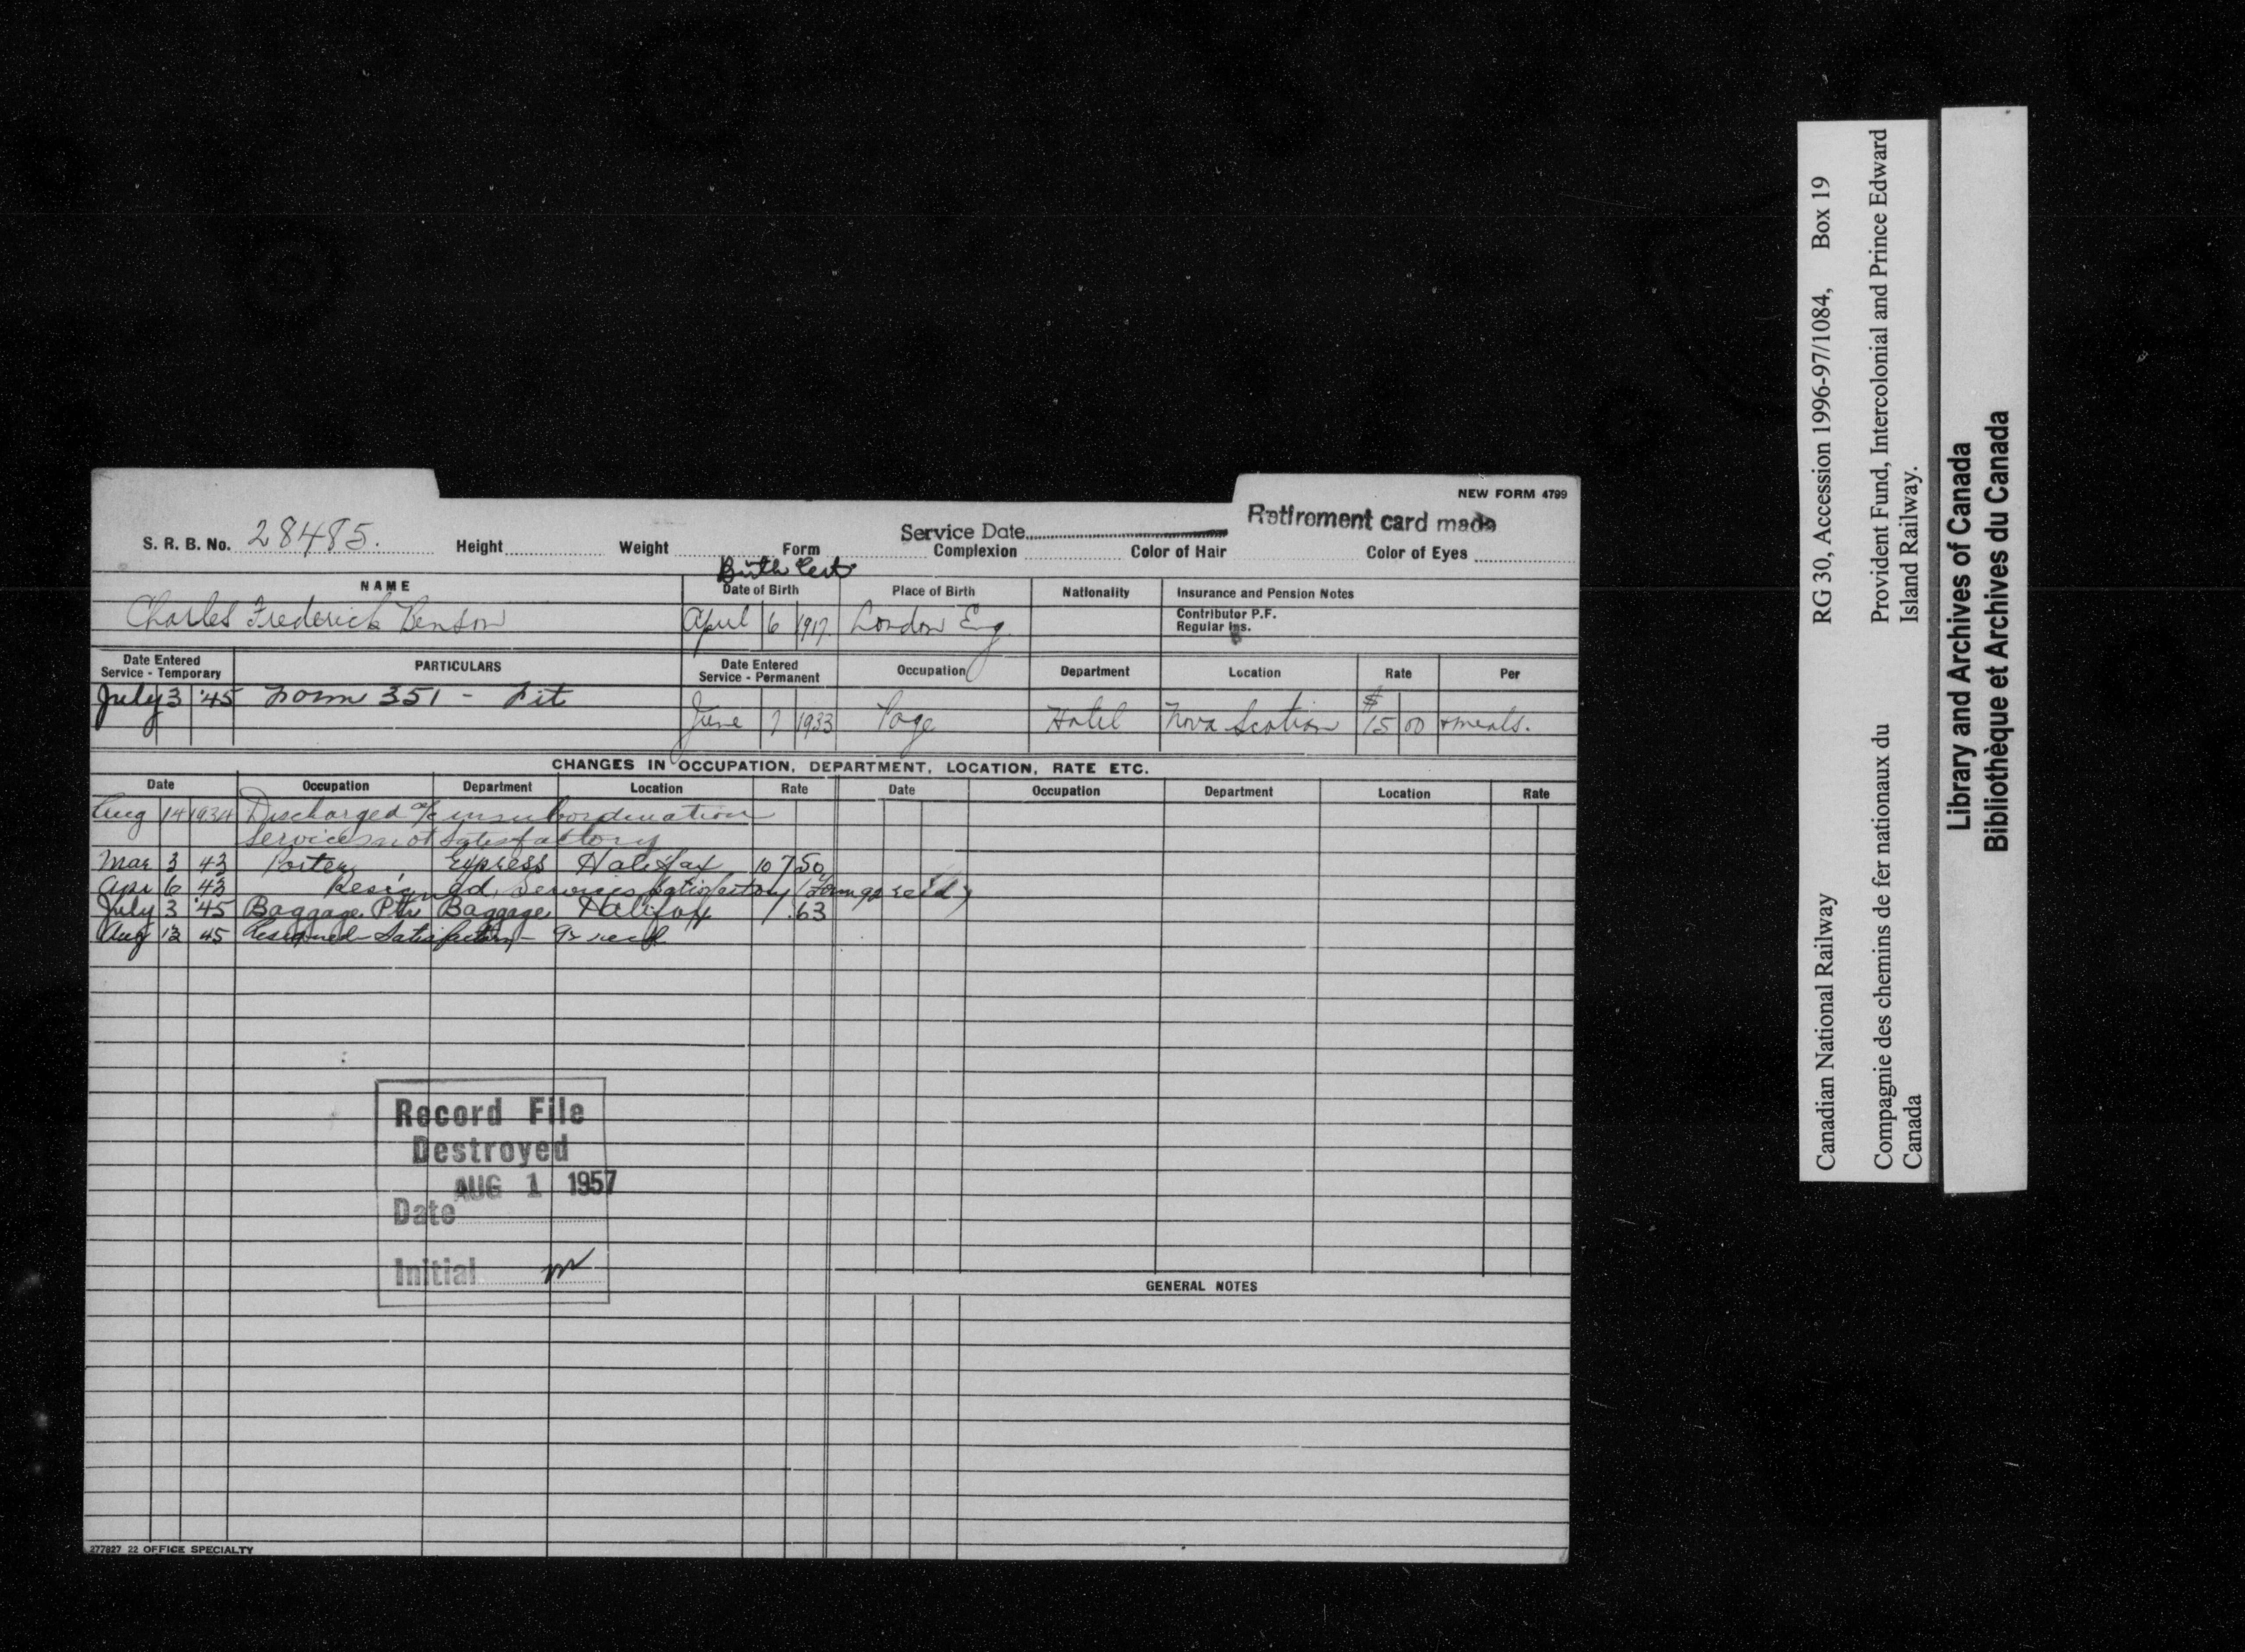 NEW FORM 4799
Retirement card made
Service Date
S. R. B. No. 28485.
Height Weight Form Complexion Color of Hair Color of Eyes
Birth Cert
NAME Date of Birth Place of Birth Nationality Insurance and Pension Notes
Charles Frederick Benson April 6 1917 London Eng
Contributor P.F.
Regular Ins.
Date Entered Service - Temporary PARTICULARS Date Entered Service - Permanent Occupation Department Location Rate Per
July 3 '45 Form 351 - Fit
June 7 1933 Page Hotel Nova Scotian $ 15 00 + meals.
CHANGES IN OCCUPATION, DEPARTMENT, LOCATION, RATE ETC.
Date Occupation Department Location Rate Date Occupation Department Location Rate
Aug 14 1934 Discharged a/c insubordination
services not satisfactory
Mar 3 43 Porter Express Halifax 107 50
Apr 6 43 Resigned. Services satisfactory (Form 92 rec'd)
July 3 '45 Baggage Ptr Baggage Halifax .63
Aug 12 45 Resigned - Satisfactory - 92 recd
Record File
Destroyed
AUG 1 1957
Date
Initial
GENERAL NOTES
277827 22 OFFICE SPECIALTY
Canadian National Railway RG 30, Accession 1996-97/1084, Box 19
Compagnie des chemins de fer nationaux du Canada
Provident Fund, Intercolonial and Prince Edward Island Railway.
Library and Archives of Canada
Bibliothèque et Archives du Canada